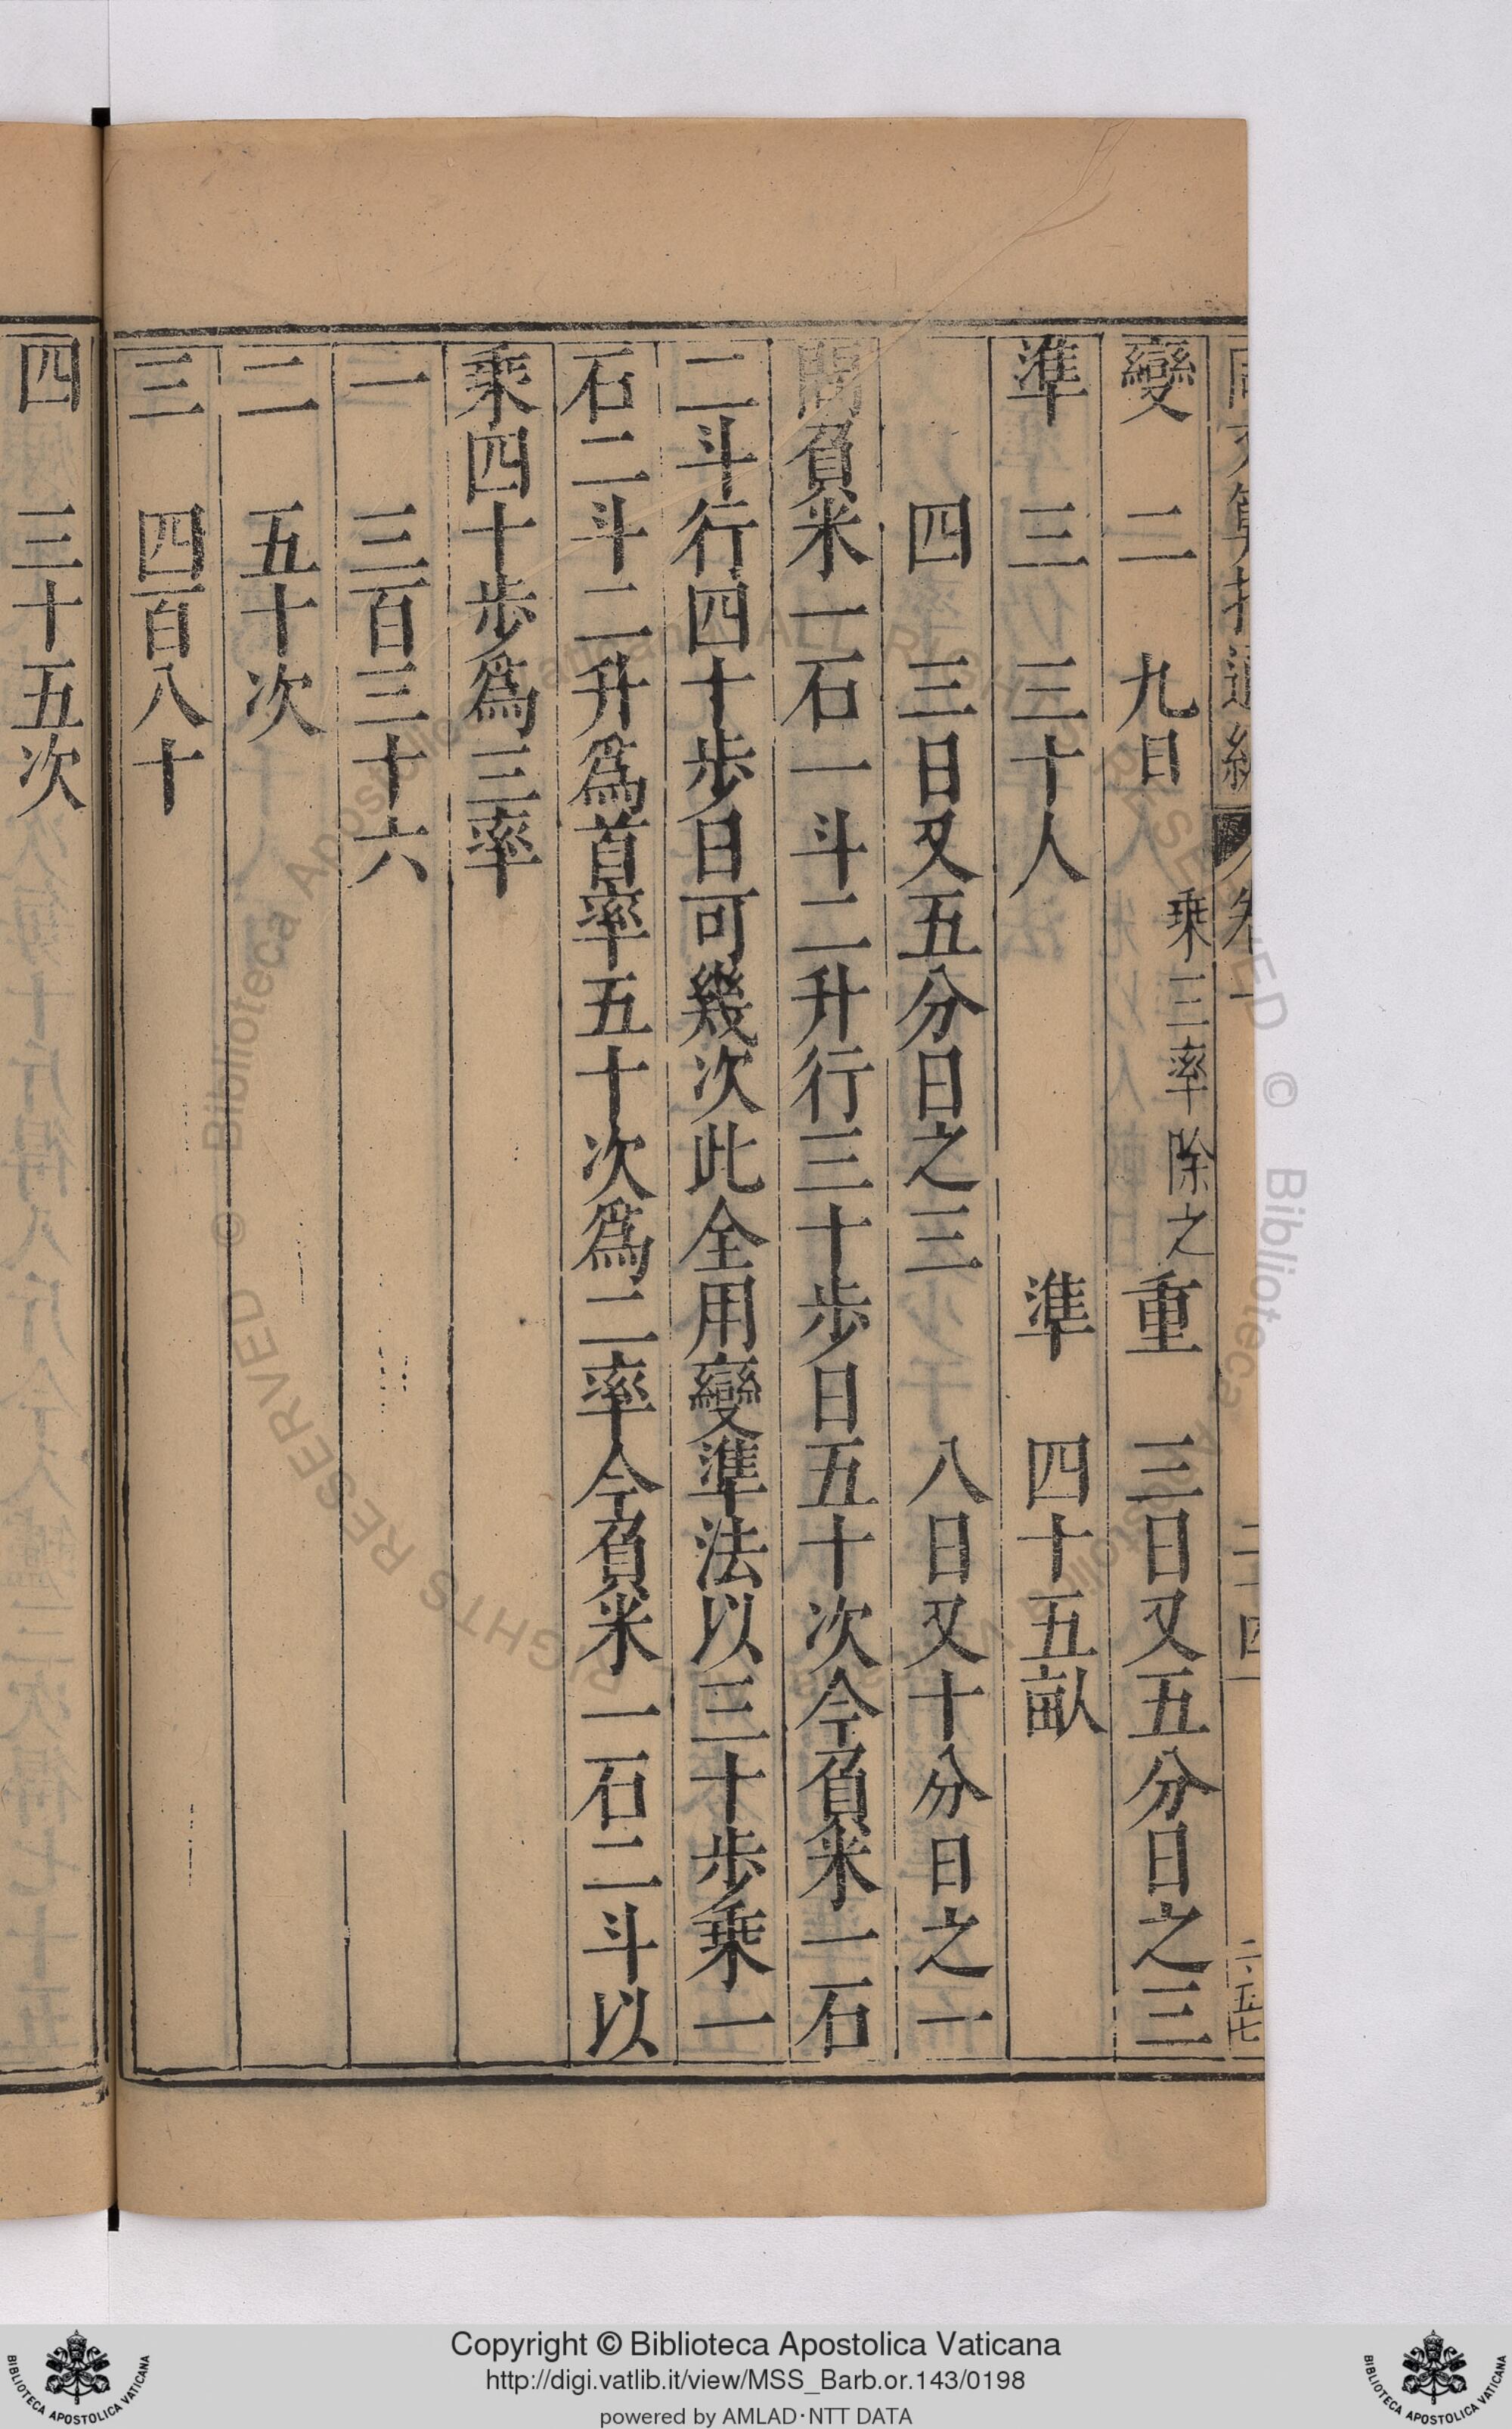 變 二 九日 乘三率除之 重 三日又五分日之三
準 三 三十人 準 四十五畝
四 三日又五分日之三 八日又十分日之一
問負米一石一斗二升行三十步日五十次今負米一石
二斗行四十步日可幾次此全用變準法以三十步乘一
石二斗二升爲首率五十次爲二率今負米一石二斗以
乘四十步爲三率
一 三百三十六
二 五十次
三 四百八十
四 三十五次
Copyright © Biblioteca Apostolica Vaticana
http://digi.vatlib.it/view/MSS_Barb.or.143/0198
powered by AMLAD·NTT DATA
BIBLIOTECA APOSTOLICA VATICANA
BIBLIOTECA APOSTOLICA VATICANA